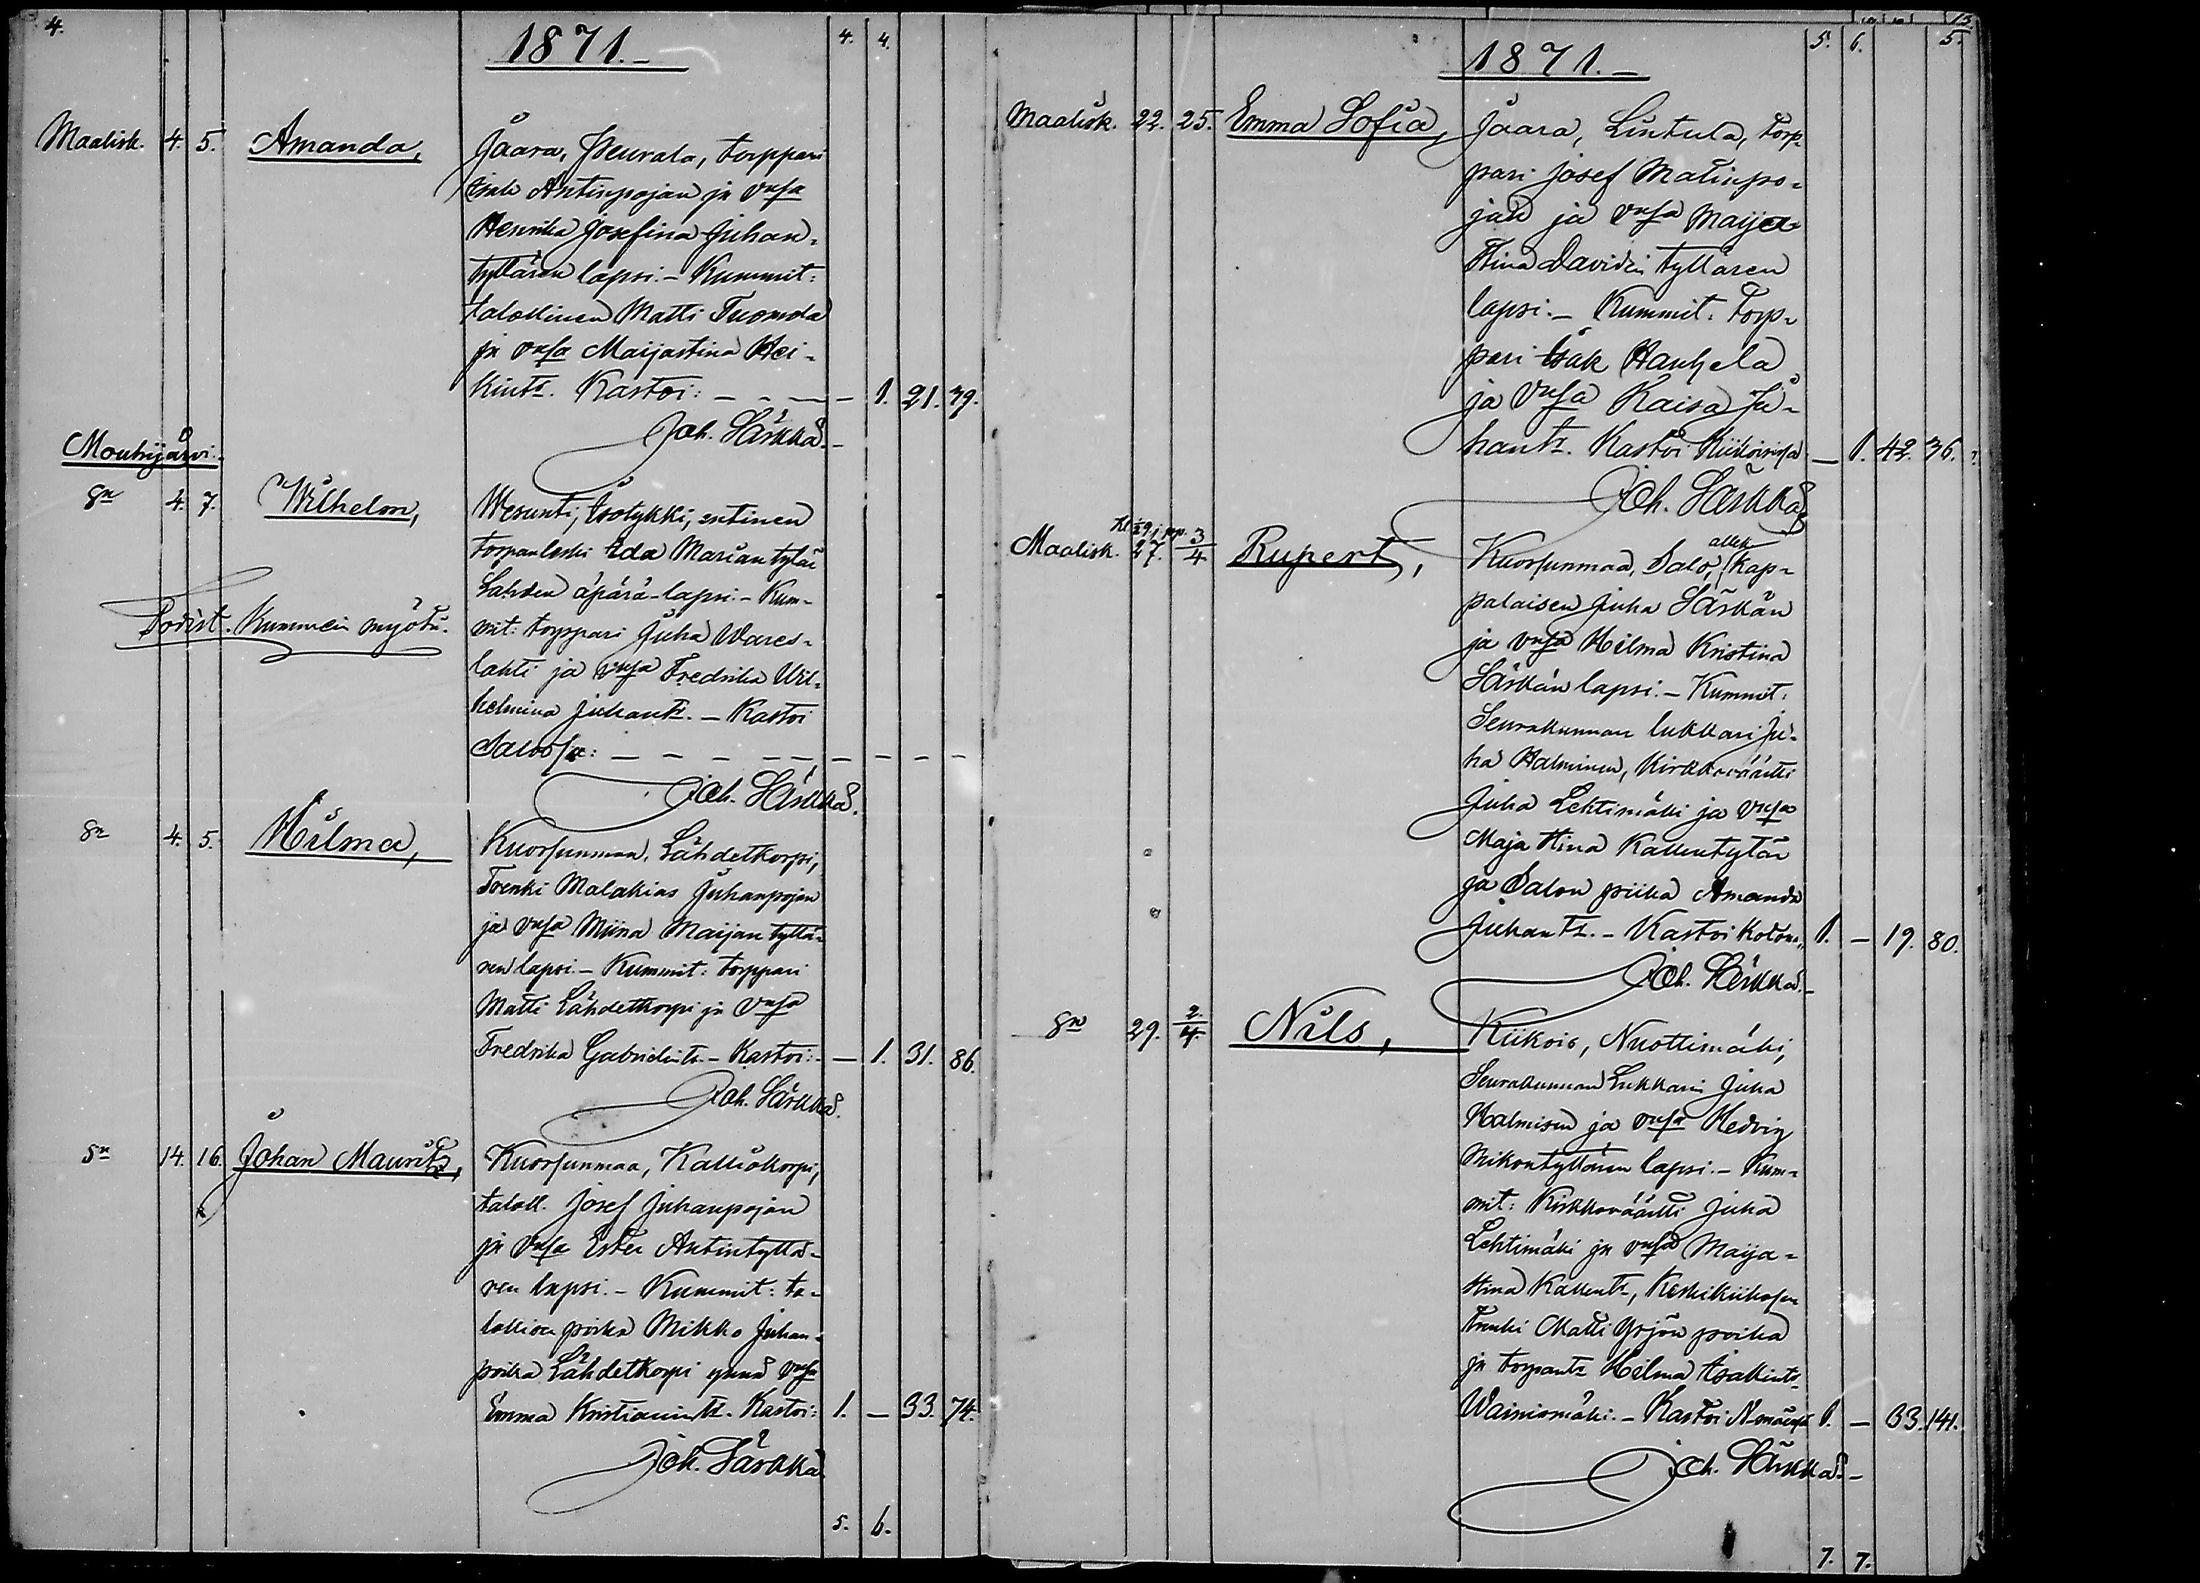 4.
1871.
4. 4.
Maalisk. 4. 5. Amanda,
Jaara, Seurala, torppari
Isak Antinpojan ja
Henrika Josefina Juhan-
tyttären lapsi. - Kummit:
talollinen Matti Tuomola
ja Maijastina Hei-
kint. Kastoi: - 1. 21. 39.
Joh. Särkkä.
Mouhijärvi.
4. 7. Wilhelm,
Wesunti, Isotykki, entinen
torpanleski Eda Mariantytär
Lahden äpärä-lapsi. - Kum-
mit: torppari Juha Wares-
lahti ja Fredrika Wil-
helmina Juhant. - Kastoi
Salossa: -
Todist. Kummein myötä.
Joh. Särkkä.
4. 5. Hilma,
Kuorsunmaa, Lähdetkorpi,
Trenki Malakias Juhanpojan
ja Miina Maijan tyttä-
ren lapsi. - Kummit: torppari
Matti Lähdetkorpi ja
Fredrika Gabrielint. - Kastoi: - 1. 31. 86.
Joh. Särkkä.
14. 16. Johan Maurits,
Kuorsunmaa, Kalliokorpi,
taloll. Josef Juhanpojan
ja Ester Antintyttä-
ren lapsi. - Kummit: ta-
lollisen poika Mikko Juhan-
poika Lähdetkorpi ynnä
Emma Kristianint. Kastoi: 1. - 33. 74.
Joh. Särkkä
5. 6.
15
5.
1871.
5. 6.
Maalisk. 22. 25. Emma Sofia,
Jaara, Lintula, Torp-
pari Josef Matinpo-
jan ja Maija
Stina Davidin tyttären
lapsi. - Kummit: Torp-
pari Isak Hanhela
ja Kaisa Ju-
hant. Kastoi Kiikoisissa - 1. 42. 36.
Joh. Särkkä
Maalisk. 27. 3/4 Rupert,
Kuorsunmaa, Salo, Kap-
palaisen Juha Särkän
ja Hilma Kristina
Särkän lapsi. - Kummit:
Seurakunnan lukkari Ju-
ha Halminen, Kirkkoväärtti
Juha Lehtimäki ja
Maja Stina Kallentytär
ja Salon piika Amanda
Juhant. - Kastoi kotona 1. - 19. 80.
Joh. Särkkä.
29. 2/4. Nils,
Kiikois, Nuottimäki,
Seurakunnan Lukkarin Juha
Halmisen ja Hedvig
Mikontyttären lapsi. - Kum-
mit: Kirkkoväärtti Juha
Lehtimäki ja Maija-
Stina Kallent.,
Trenki Matti Yrjön poika
ja torpant. Hilma Isakint.
Wainiomäki. - Kastoi 1. - 33. 141.
Joh. Särkkä.
7. 7.